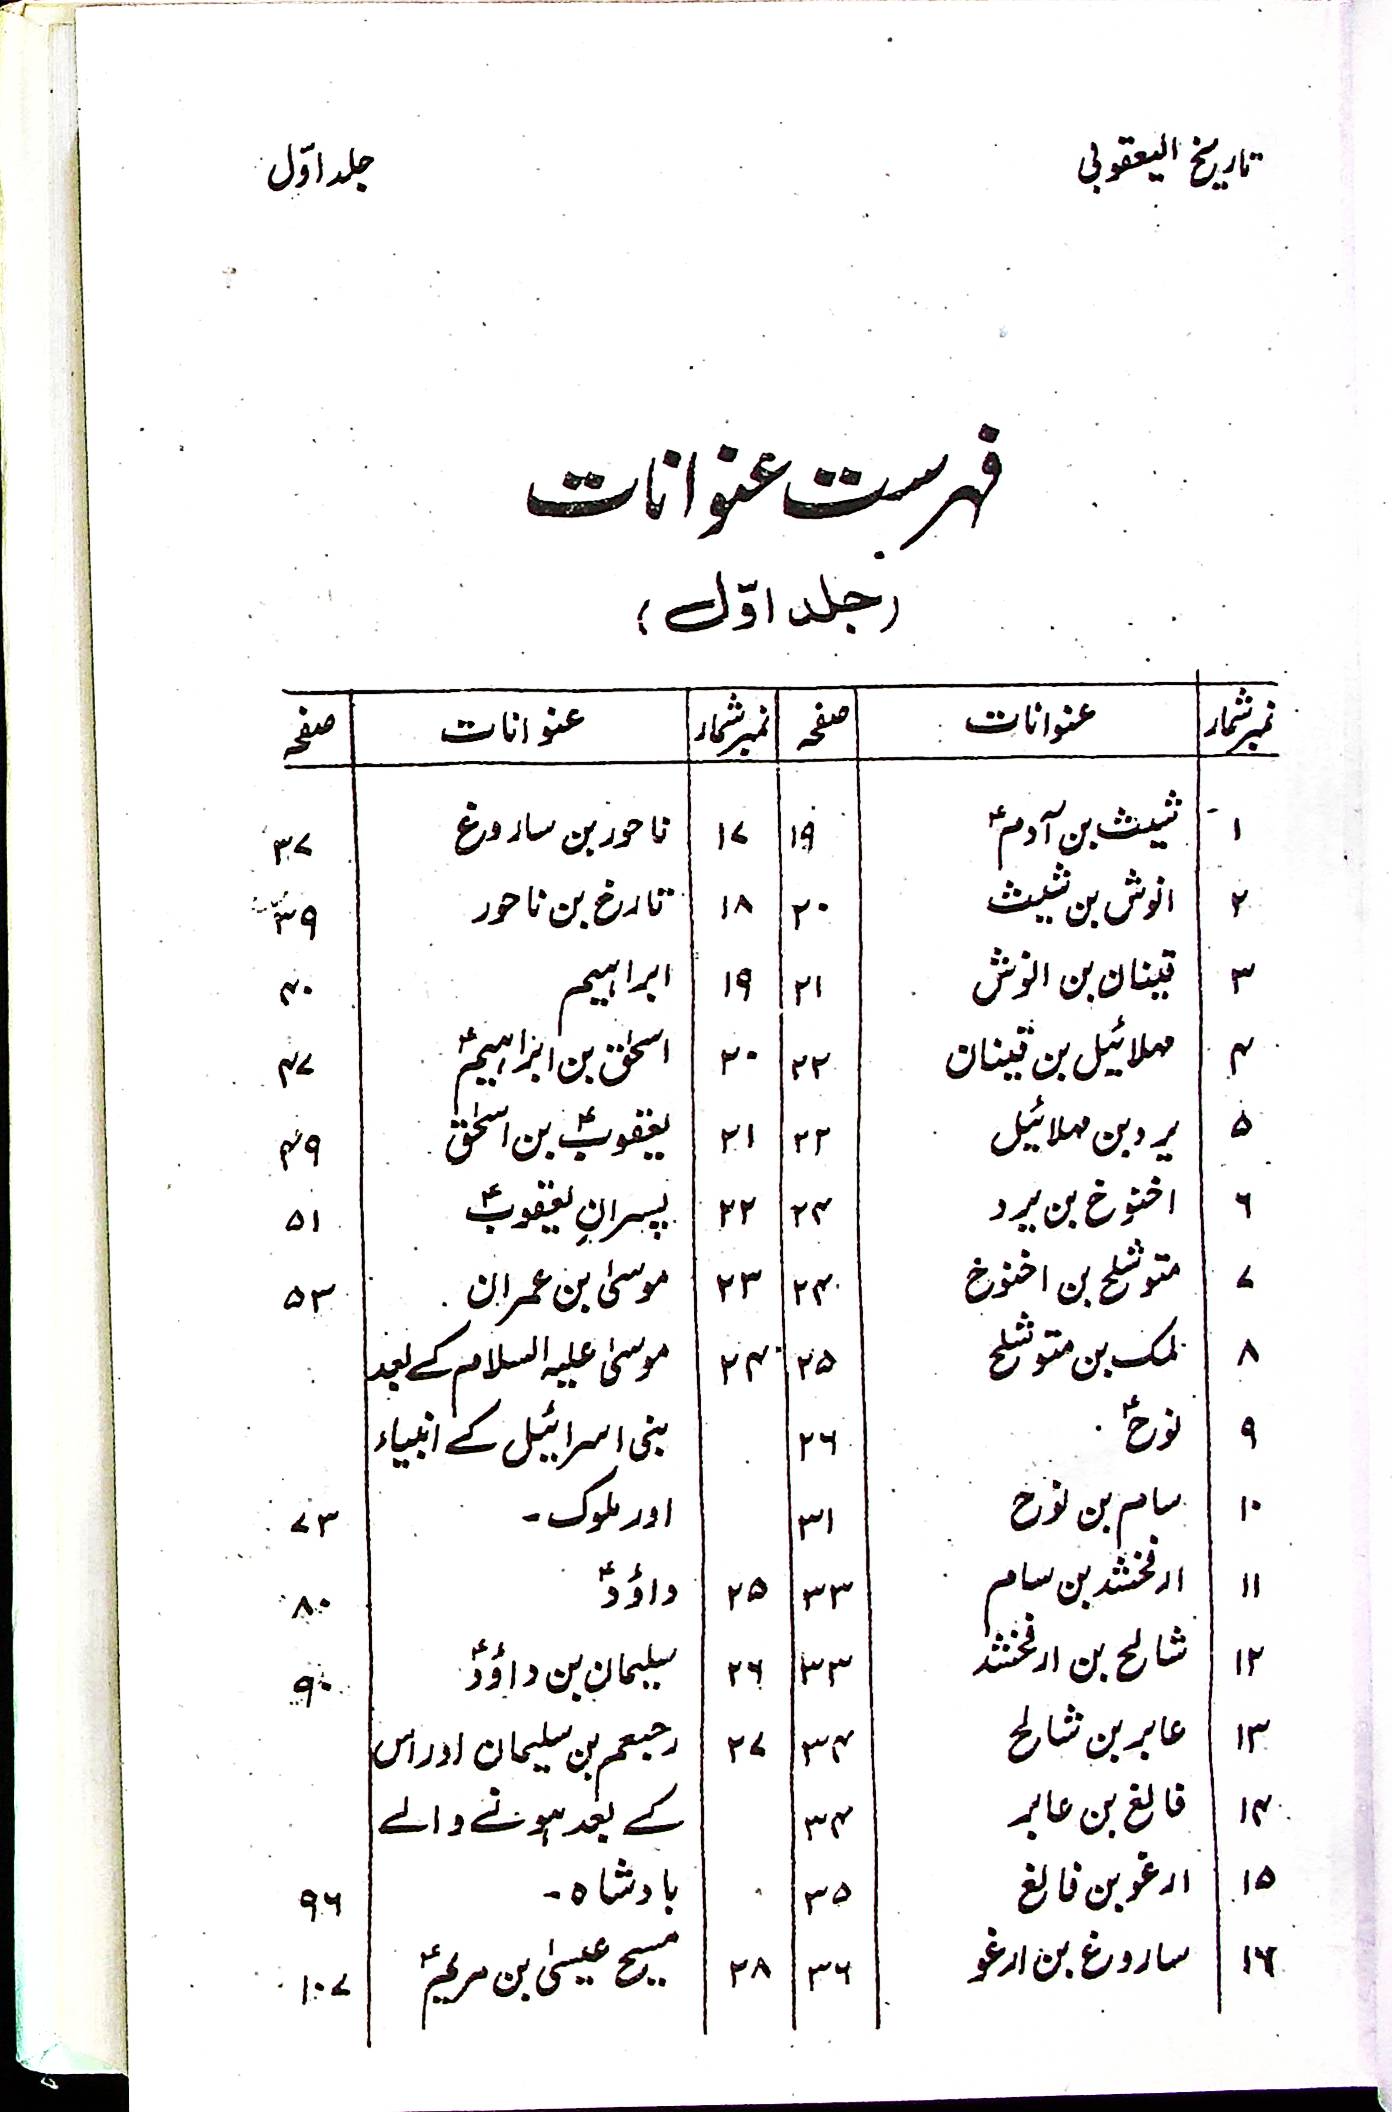 تاریخ الیعقوبی
جلد اوّل
فہرست عنوانات
(جلد اوّل)
نمبر شمار عنوانات صفحہ نمبر شمار عنوانات صفحہ
۱ شیث بن آدمؑ ۱۹ ۱۷ ناحور بن ساروغ ۳۷
۲ انوش بن شیث ۲۰ ۱۸ تارخ بن ناحور ۳۹
۳ قینان بن انوش ۲۱ ۱۹ ابراہیم ۴۰
۴ مہلائیل بن قینان ۲۲ ۲۰ اسحٰق بن ابراہیمؑ ۴۷
۵ یرد بن مہلائیل ۲۲ ۲۱ یعقوبؑ بن اسحٰق ۴۹
۶ اخنوخ بن یرد ۲۴ ۲۲ پسرانِ یعقوبؑ ۵۱
۷ متوشلح بن اخنوخ ۲۴ ۲۳ موسیٰ بن عمران ۵۳
۸ لمک بن متوشلح ۲۵ ۲۴ موسیٰ علیہ السلام کے بعد
۹ نوحؑ ۲۶ بنی اسرائیل کے انبیاء
۱۰ سام بن نوح ۳۱ اور ملوک۔ ۷۳
۱۱ ارفخشد بن سام ۳۳ ۲۵ داؤدؑ ۸۰
۱۲ شالح بن ارفخشد ۳۳ ۲۶ سلیمان بن داؤدؑ ۹۰
۱۳ عابر بن شالح ۳۴ ۲۷ رحبعم بن سلیمان اور اس
۱۴ فالغ بن عابر ۳۴ کے بعد ہونے والے
۱۵ ارغو بن فالغ ۳۵ بادشاہ۔ ۹۶
۱۶ ساروغ بن ارغو ۳۶ ۲۸ مسیح عیسیٰ بن مریمؑ ۱۰۷